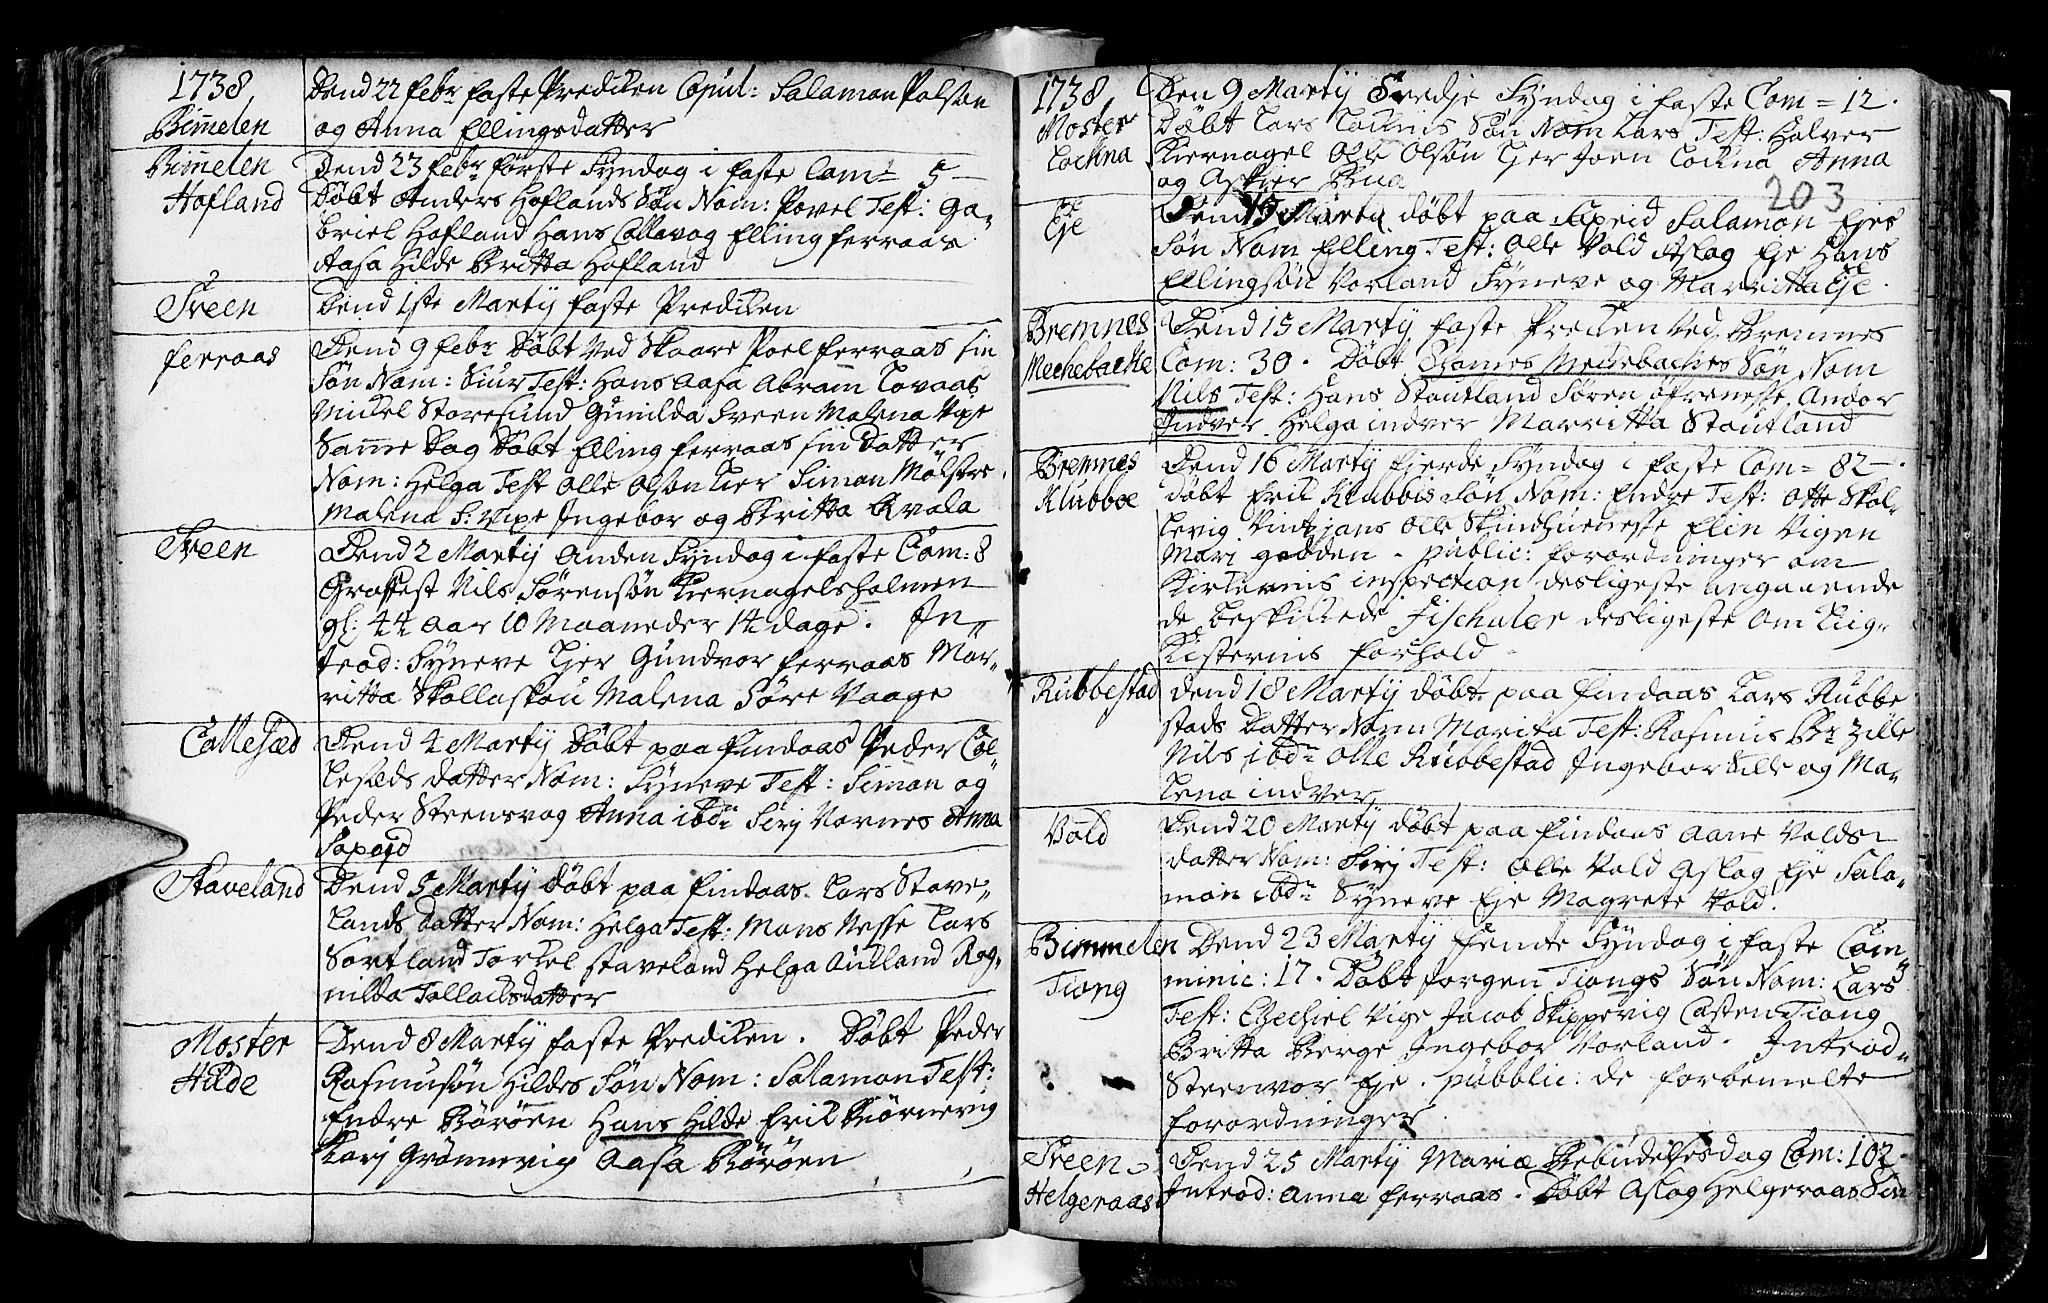 1738
Bim̅elen
Dend 22 febr faste Prediken Copul: Salamon Polsøn
og Anna Ellingsdatter
Bim̅elen
Hofland
Dend 23 febr første Syndag i faste Com: 5 -
Døbt Anders Hoflands Søn Nom: Povel Test: Ga-
briel Hofland Hans Callavag Elling ferraas
Aasa Hilde Britta Hofland
Sveen
Dend 1ste Martÿ faste Prediken
ferraas
Dend 9 febr Døbt Ved Skaare Poel ferraas sin
Søn Nom: Siur Test: Hans Aasa Abram Lovaas
Mickel Storesund Gunilda Sveen Malena Vige
Sam̅e Dag Døbt Elling ferraas sin Datter
Nom: Helga Test Olle Olson Simon Molstre.
Malena S: Vige Ingebor og Britta Qvala
Sveen
Dend 2 Martÿ Anden Syndag i faste Com: 8
Graffest Nils Sørensøn Kiernagelsholmen
gl: 44 aar 10 Maaneder 14 dage. In-
trod: Syneve Gundvor ferraas Mar-
ritta Skollaskou Malena Søre Vaage
Callesæd
Dend 4 Martÿ Døbt paa findaas Peder Cal-
lesæds datter Nom: Syneve Test: Simon og
Peder Steensvog Anna ibdn Sirj Vornes Anna
Sapeid
Staveland
Dend 5 Martÿ døbt paa findaas Lars Stave-
lands datter Nom: Helga Test: Mons Nesse Lars
Sortland Torkel staveland Helga Auland Rag-
nilda Tollachsdatter
Moster
Hilde
Dend 8 Martÿ faste Prediken. Døbt Peder
Rasmusøn Hildes Søn Nom: Salamon Test:
Endre Børøen Hans Hilde Erik Biørnevig
Karj Grønnevig Aasa Børøen
1738,
Moster
Lochna
Den 9 Martÿ Tredje Syndag i faste Com = 12.
Døbt Lars Søn Nom Lars Test: Halvor
Kiernagel Olle Olsøn Joen Lochna Anna
og Bua
203
Eje
Dend 13 Martÿ døbt paa Sapeid Salamon Ejes
Søn Nom Elling Test: Olle Vold Aslag Eje Hans
Ellingsøn Vorland Syneve og Marritta Eje.
Bremnes
Mechebache
Dend 15 Martÿ faste Prediken Ved Bremnes
Com: 30. Døbt Mechebaches Søn Nom
Nils Test: Hans Stoutland Søren Andor
Indver Helga indver Marritta Stoutland
Bremnes
Klubboe
Dend 16 Martÿ fjerde Syndag i faste Com = 82 -.
døbt Erik Klubbis Søn Nom: Endre Test: Otte Skol-
levig Olle Elin Vigen
Mari gadden. public: forordninger om
Kirkernis inspection desligeste angaaende
de beskikede desligeste Om Lig-
Kisternis forhold -
Rubbestad
dend 18 Martÿ døbt paa findaas Lars Rubbe
stads Datter Nom: Marita Test: Rasmus
Nils ibdn Olle Rubbestad Ingebor og Ma-
lena indver.
Vold
Dend 20 Martÿ døbt paa findaas Aane Volds
datter Nom: Sirj Test: Olle Vold Aslag Eje Sala-
mon ibdn Syneve Eje Magrete Vold.
Bimmelen
Tiong
Dend 23 Martÿ femte Syndag i faste Com-
minic: 17. Døbt Jørgen Tiongs Søn Nom: Lars
Test: Ezechiel Vige Jacob Skippevig Casten Tiong
Britta Berge Ingebor Vorland. Introd-
Steenvor Eje. pubblic: de forbemelte
forordninger.
Sveen
Helgeraas
Dend 25 Martÿ Mariæ Bebudelsesdag Com: 102.
Introd: Anna ferraas. Døbt Aslag Helgeraas Sin